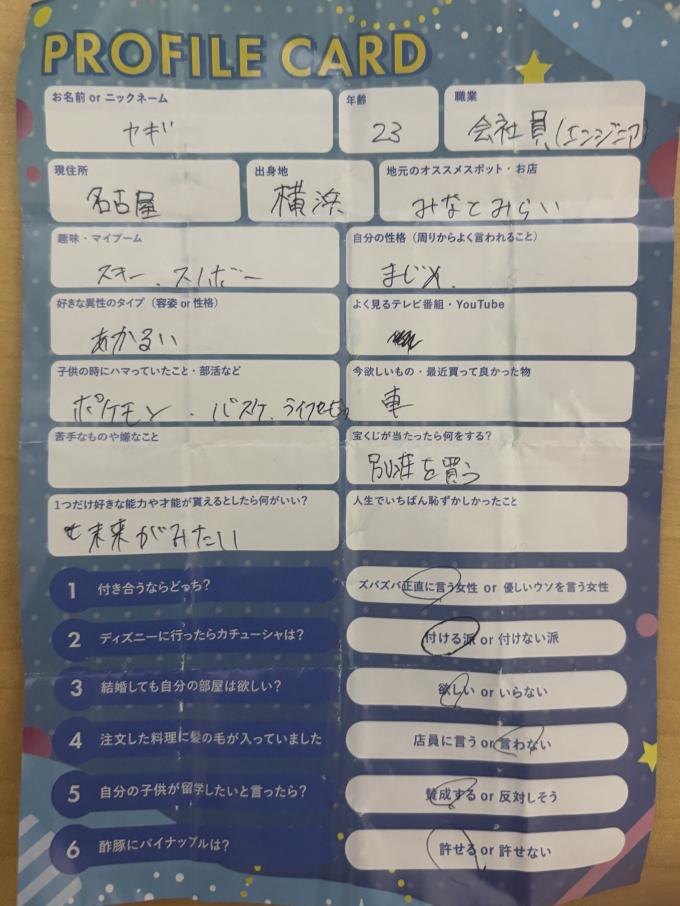 PROFILE CARD
お名前 or ニックネーム
年齢
職業
ヤギ
23
会社員(エンジニア)
現住所
出身地
地元のオススメスポット・お店
名古屋
横浜
みなとみらい
趣味・マイブーム
自分の性格(周りからよく言われること)
スキー.スノボー
まじめ.
好きな異性のタイプ(容姿 or 性格)
よく見るテレビ番組・YouTube
あかるい
子供の時にハマっていたこと・部活など
今欲しいもの・最近買って良かった物
ポケモン.バスケ.ライフセービング
車
苦手なものや嫌なこと
宝くじが当たったら何をする?
別荘を買う
1つだけ好きな能力や才能が貰えるとしたら何がいい?
人生でいちばん恥ずかしかったこと
未来がみたい
1 付き合うならどっち?
ズバズバ正直に言う女性 or 優しいウソを言う女性
2 ディズニーに行ったらカチューシャは?
付ける派 or 付けない派
3 結婚しても自分の部屋は欲しい?
欲しい or いらない
4 注文した料理に髪の毛が入っていました
店員に言う or 言わない
5 自分の子供が留学したいと言ったら?
賛成する or 反対しそう
6 酢豚にパイナップルは?
許せる or 許せない